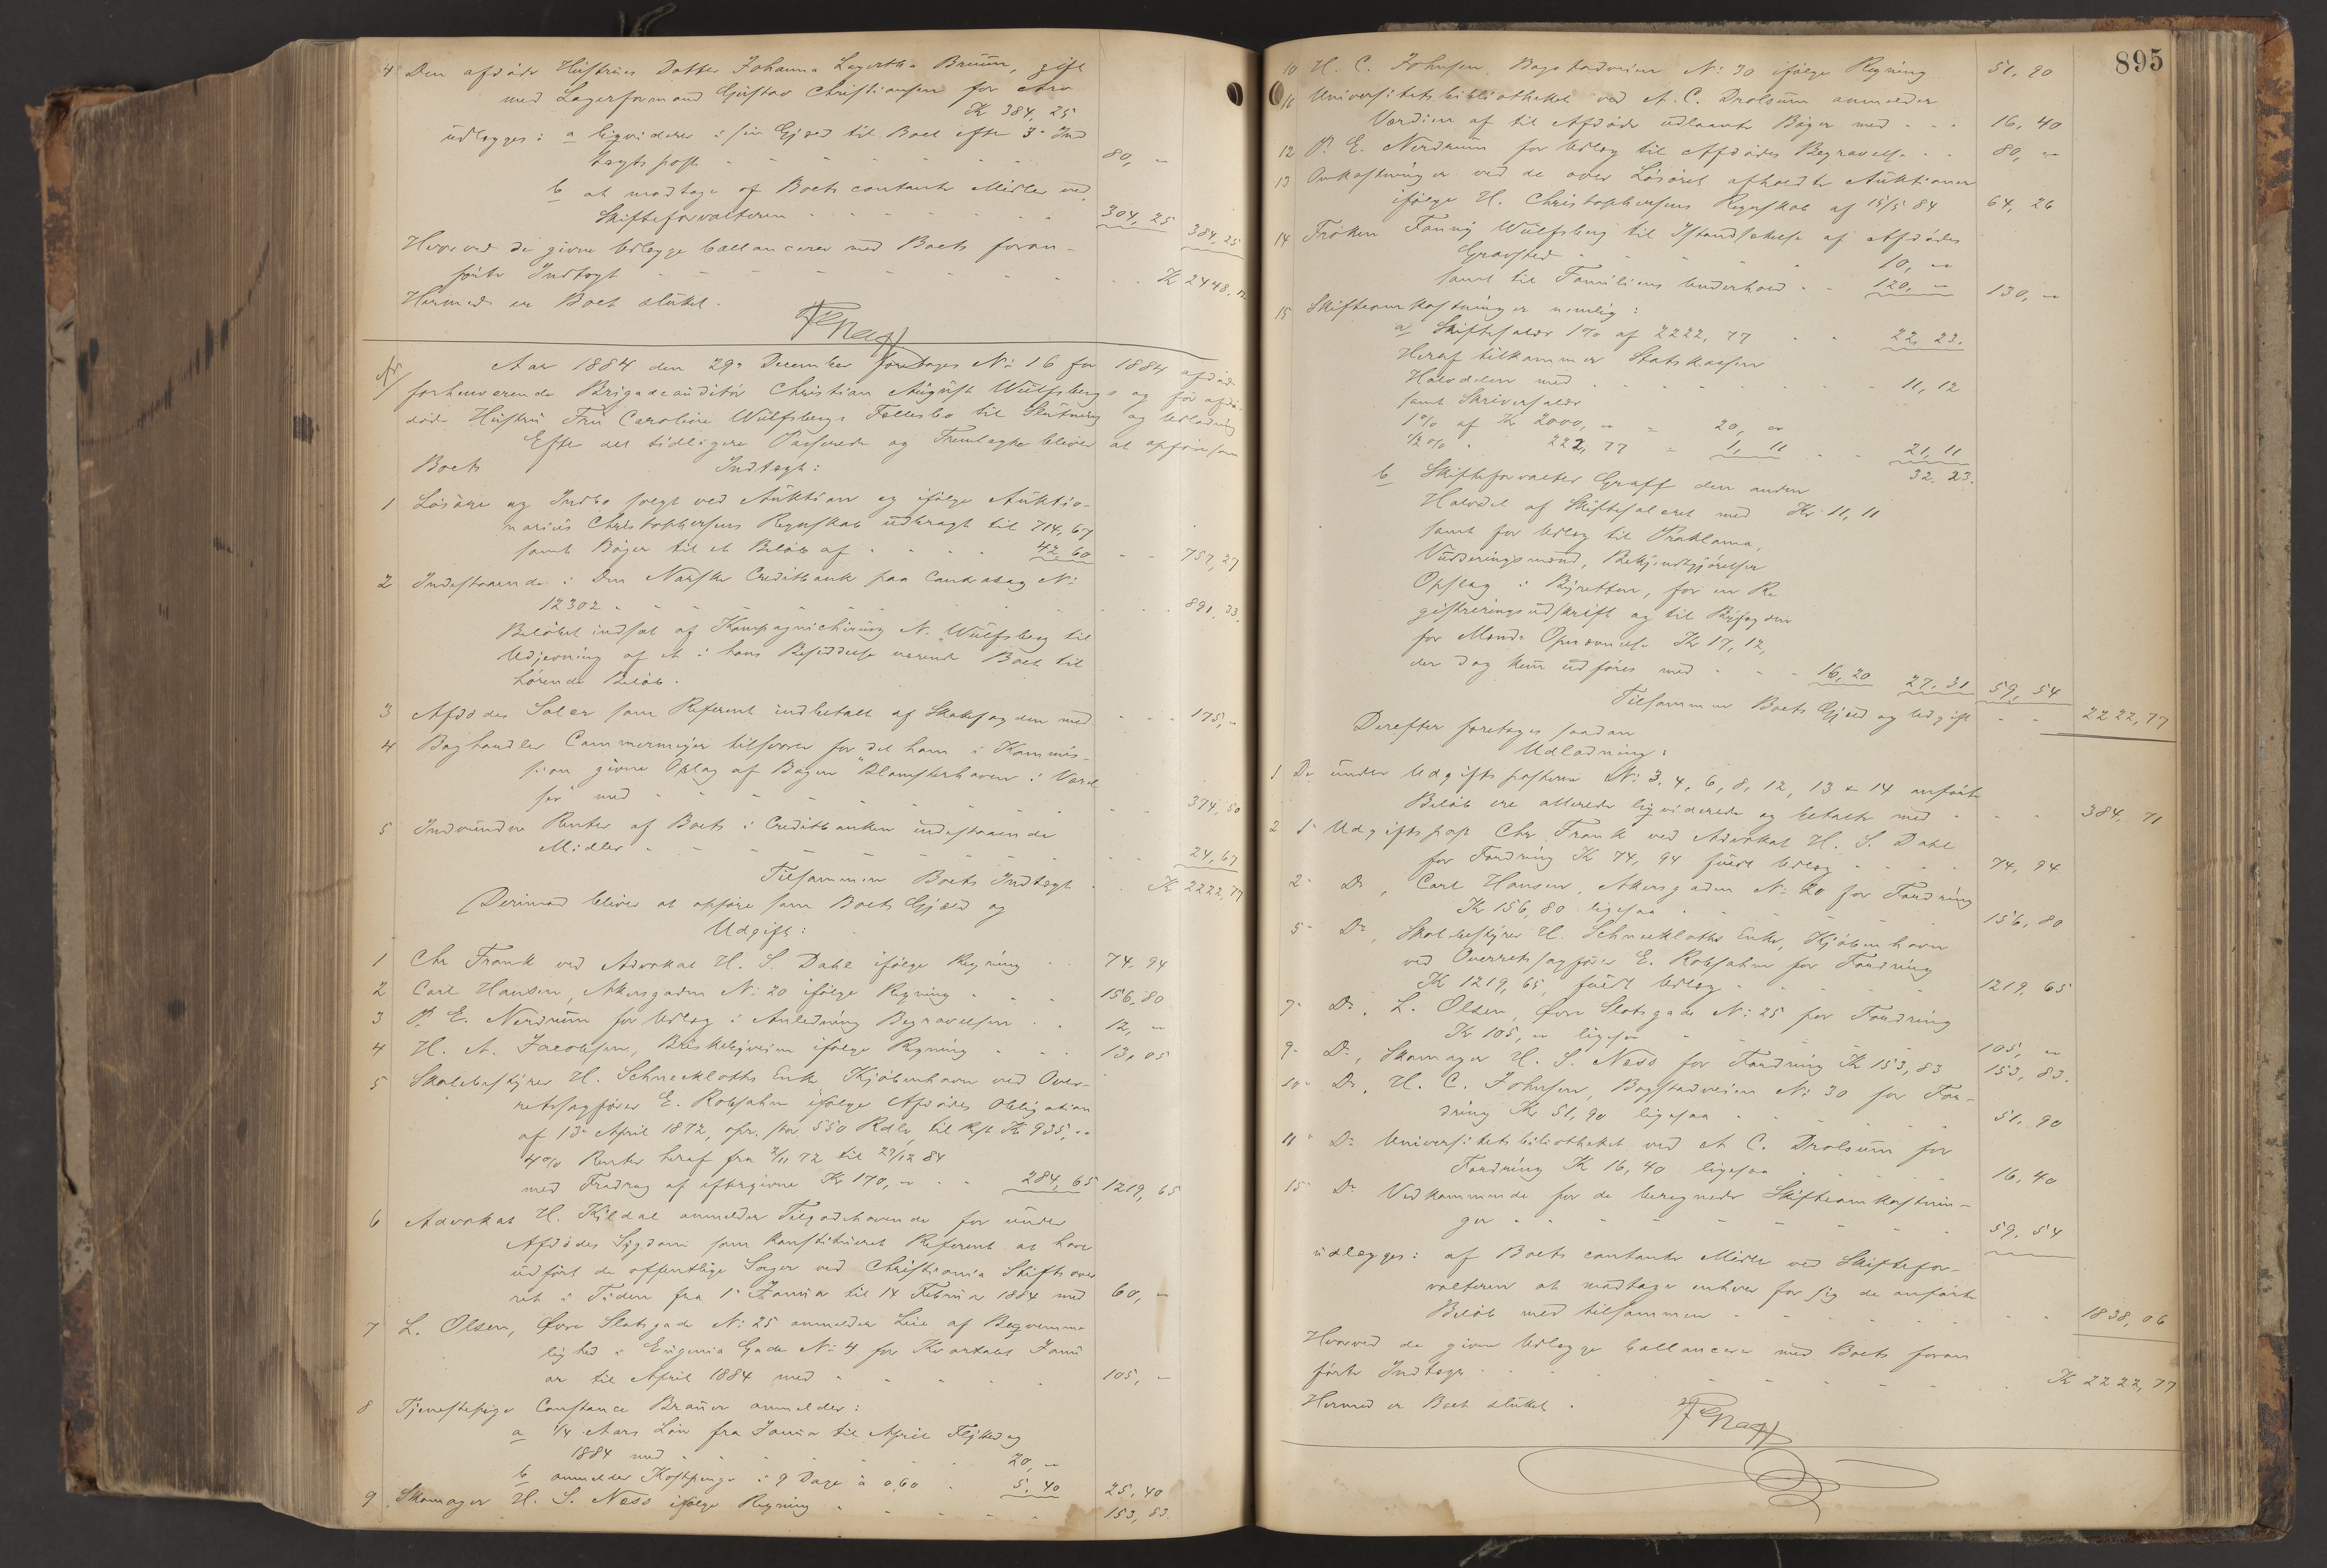 4 Den afdøde Hustrues Datter Johanna Lagertha Bruun, gift
med Lagerformand Gustav Christiansen for Arv
K 384, 25
udlægges: a liqviderer i sin Gjæld til Boet efter 3die Ind
tægtspost - - - 80, -
b at modtage af Boets contante Midler ved
Skifteforvalteren - - - 304, 25 384, 25
Hvorved de givne Udlægge ballancerer med Boets foran-
førte Indtægt - - - K 2448. 12
Hermed er Boet sluttet.
Aar 1884 den 29de December foretoges No 16 for 1884 afdøde
forhenværende Brigadeauditør Christian August Wulfsbergs og før afdø-
døde Hustru Fru Caroline Wulfsbergs Fællesbo til Slutning og Udlodning
Efter det tidligere Passerede og Fremlagte bliver at opføre som
Boets Indtægt:
1 Løsøre og Indbo solgt ved Auktion og ifølge Auktio-
narius Christophersens Regnskab udbragt til 714, 67
samt Bøger til et Beløb af - - - 42, 60 - - 757, 27
2 Indestaaende i Den Norske Creditbank paa Contrabog No
12302 - - - 891. 33.
Beløbet indsat af Kompagnichirurg N. Wulfsberg til
Udjevning af et i hans Besiddelse værende Boet til
hørende Beløb.
3 Afdødes Salær som Referent indbetalt af Statsfogden med - - - 175, -
4 Boghandler Cammermeyer tilsvarer for det ham i Kommis-
sion givne Oplag af Bogen "Blomsterhaven i Værel
ser" med - - - 374, 50
5 Indvundne Renter af Boets i Creditbanken indestaaende
Midler - - - 24, 67
Tilsammen Boets Indtægt - - K 2222, 77
Derimod bliver at opføre som Boets Gjæld og
Udgift:
1 Chr Frank ved Advokat H. S. Dahl ifølge Regning - - 74. 94
2 Carl Hansen, Akersgaden No 20 ifølge Regning - - - 156. 80
3 P. E. Nordrum for Udlæg i Anledning Begravelsen - - 12, -
4 H. A. Jacobsen, Briskebyveien ifølge Regning - - - 13, 05
5 Skolebestyrer H. Schneekloths Enke, Kjøbenhavn ved Over-
retssagfører E. Robsahm ifølge Afdødes Obligation
af 13de April 1872, opr. stor 550 Rdlr, til Rest Kr 935, -
4% Renter heraf fra 2/11 72 til 29/12 84
med Fradrag af eftergivne Kr 170, - - - 284, 65 1219, 65
6 Advokat H. Kildal anmelder Tilgodehavende for under
Afdødes Sygdom som konstitueret Referent at have
udført de offentlige Sager ved Christiania Stiftsover
ret i Tiden fra 1 Januar til 14 Februar 1884 med 60, -
7 L. Olsen, Øvre Slotsgade No 25 anmelder Leie af Beqvemme
lighed i Eugenia Gade No 4 for Kvartalet Janu
ar til April 1884 med - - - 105, -
8 Tjenestepige Constance Braüer anmelder:
a 1/4 Aars Løn fra Januar til April Flyttedag
1884 med - - - 20, -
b anmelder Kostpenge i 9 Dage à 0,60 - 5, 40 25, 40
9 Skomager H. S. Næss ifølge Regning - - - 153, 83.
895
10 H. C. Johnsen, Bogstadveien No 30 ifølge Regning 51, 90
11 Universitetsbibliotheket ved A. C. Drolsum anmelder
Værdien af til Afdøde udlaante Bøger med - - - 16, 40
12 P. E. Nordrum for Udlæg til Afdødes Begravelse - - 80, -
13 Omkostninger ved de over Løsøret afholdte Auktioner
ifølge H. Christophersens Regnskab af 15/5 84 64, 26
14 Frøken Fanny Wulfsberg til Istandsættelse af Afdødes
Gravsted - - - 10, -
samt til Familiens Underhold - - 120, - 130, -
15 Skifteomkostninger nemlig:
a Skiftesalær 1% af 2222, 77 - - 22, 23.
Heraf tilkommer Statskassen
Halvdelen med - - - 11, 12
samt Skriversalær
1% af Kr 2000, - = 20, -
1/2% " 222, 77 = 1, 11 - - 21, 11
32, 23.
b Skifteforvalter Graff den anden
Halvdel af Skiftesalæret med Kr 11, 11
samt for Udlæg til Proklama,
Vurderingsmænd, Bekjendtgjørelser
Opslag i Byretten, for en Re
gistreringsudskrift og til Byfogden
for Mænds Opnævnelse Kr 17, 12,
der dog kun udføres med - - - 16, 20 27. 31 59, 54
Tilsammen Boets Gjæld og Udgift - - 2222, 77
Derefter foretoges saadan
Udlodning:
1 De under Udgiftsposterne No 3, 4, 6, 8, 12, 13 & 14 anførte
Beløb ere allerede liqviderede og betalte med - - - 384, 71
2 1ste Udgiftspost Chr. Frank ved Advokat H. S. Dahl
for Fordring K 74, 94 fuldt Udlæg - - - 74, 94
2den Do, Carl Hansen, Akersgaden No 20 for Fordring
Kr 156, 80 ligesaa - - - 156, 80
5te Do, Skolebestyrer H. Schneekloths Enke, Kjøbenhavn
ved Overretssagfører E. Robsahm for Fordring
K 1219, 65, fuldt Udlæg - - - 1219, 65
7de Do, L. Olsen, Øvre Slotsgade No 25 for Fordring
Kr 105, - ligesaa - - - 105, -
9de Do, Skomager H. S. Næss for Fordring K 153, 83 153, 83.
10de Do, H. C. Johnsen, Bogstadveien No 30 for For-
dring Kr 51, 90 ligesaa - - - 51, 90
11te Do Universitetsbibliotheket ved A C. Drolsum for
Fordring K 16, 40 ligesaa - - - 16, 40
15de Do Vedkommende for de beregnede Skifteomkostnin-
ger - - - 59, 54
udlægges: af Boets contante Midler ved Skiftefor-
valteren at modtage enhver for sig de anførte
Beløb med tilsammen - - - 1838, 06
Hvorved de givne Udlægge ballancerer med Boets foran
førte Indtægt - - - K 2222, 77
Hermed er Boet sluttet.